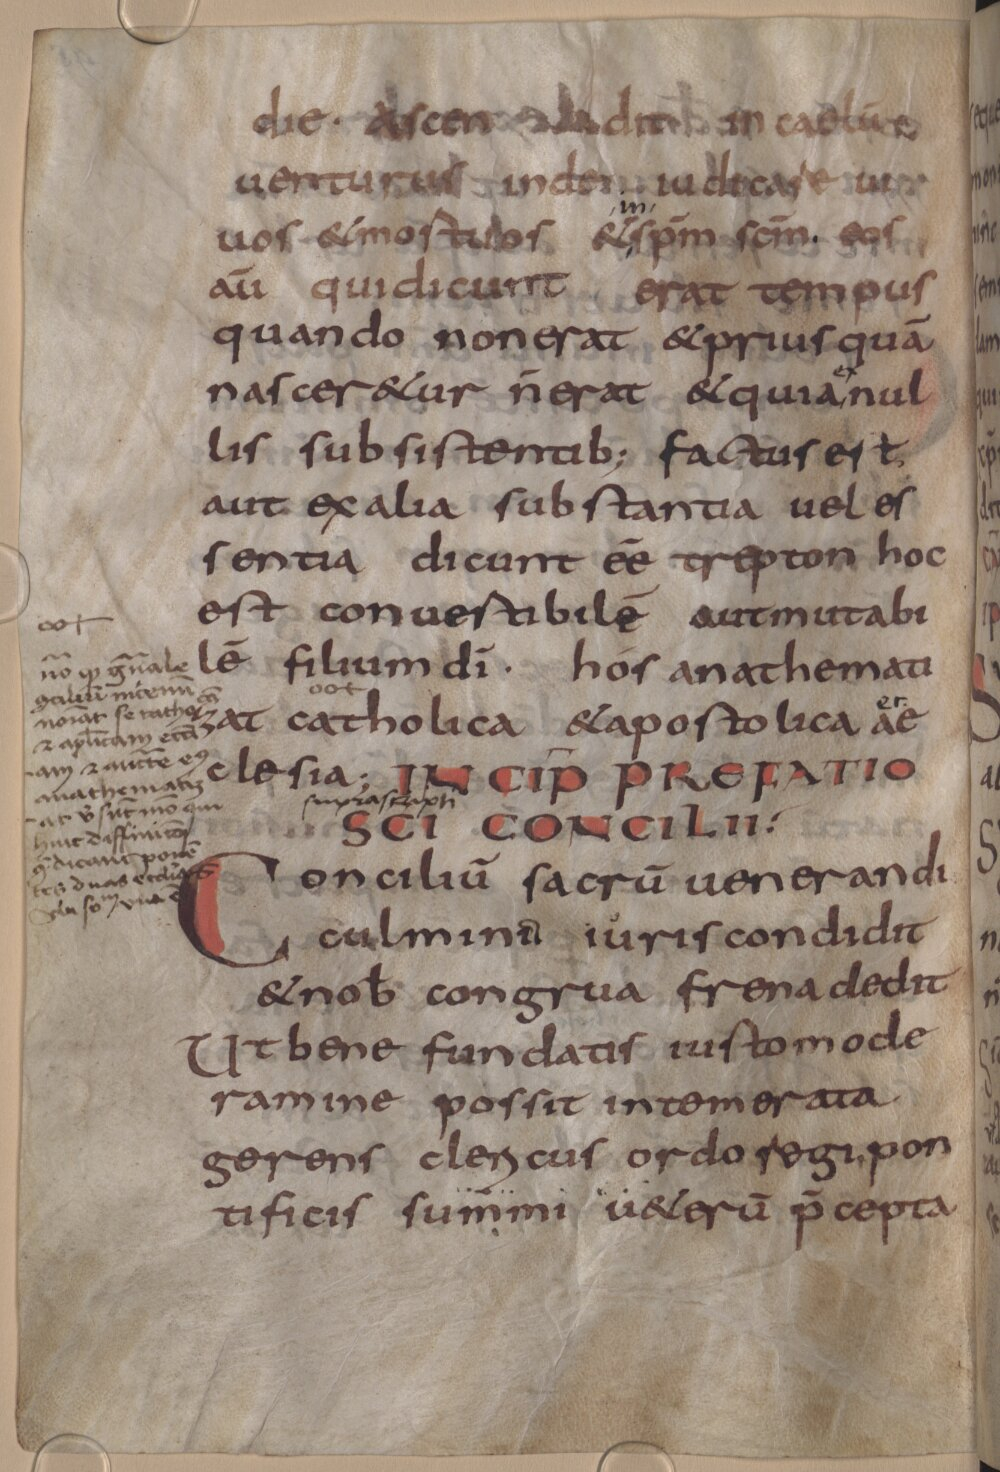 die. Ascendit in caelūe
uenturus inde iudicare ui
uos &mortuos &in sp̄m sc̄m. eos
aū qui dicunt erat tempus
quando non erat &priusquā
nascer&ur n̄ erat &quia ex nul
lis subsistentib; factus est,
aut ex alia substantia uel es
sentia dicunt eē trepton hoc
est conuertibilē aut mutabi
lē filium dī. hos anathemati
zat catholica &apostolica aec
clesia; INCIP̄ PREFATIO
suprascripti
SCI CONCILII:
Conciliū sacrū uenerandi
culmina iuris condidit
&nob̄ congrua frena dedit
Ut bene fundatis iusto mode
ramine possit intemerata
gerens clericus ordo regi pon
tificis summi u&erū p̄cepta